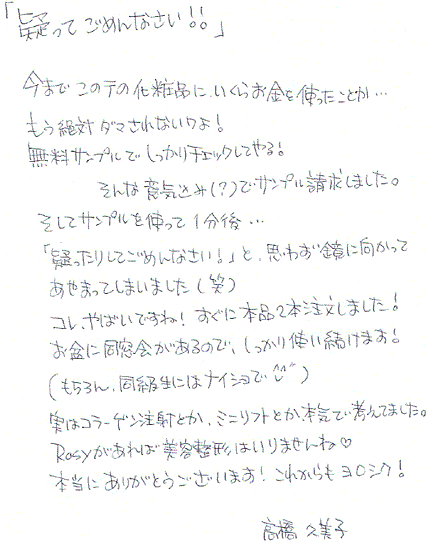 「疑ってごめんなさい!!」
今までこのテの化粧品に、いくらお金を使ったことか…
もう絶対ダマされないワよ!
無料サンプルでしっかりチェックしてやる!
そんな意気込み(?)でサンプル請求しました。
そしてサンプルを使って1分後…
「疑ったりしてごめんなさい!」と、思わず鏡に向かって
あやまってしまいました(笑)
コレ、やばいですね! すぐに本品2本注文しました!
お盆に同窓会があるので、しっかり使い続けます!
(もちろん、同級生にはナイショで^^)
実はコラーゲン注射とか、ミニリフトとか本気で考えてました。
Rosyがあれば美容整形はいりませんね♡
本当にありがとうございます! これからもヨロシク!
高橋 久美子